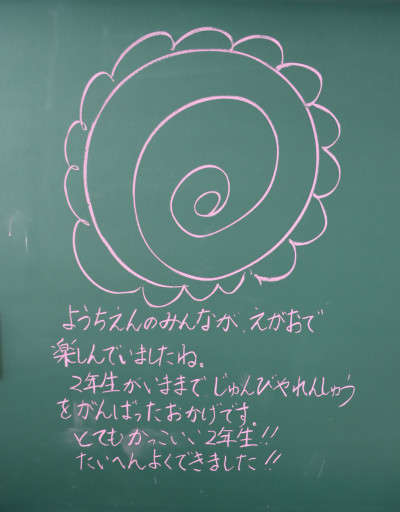 ようちえんのみんなが、えがおで
楽しんでいましたね。
2年生がいままで、じゅんびやれんしゅう
をがんばったおかげです。
とてもかっこいい2年生!!
たいへんよくできました!!